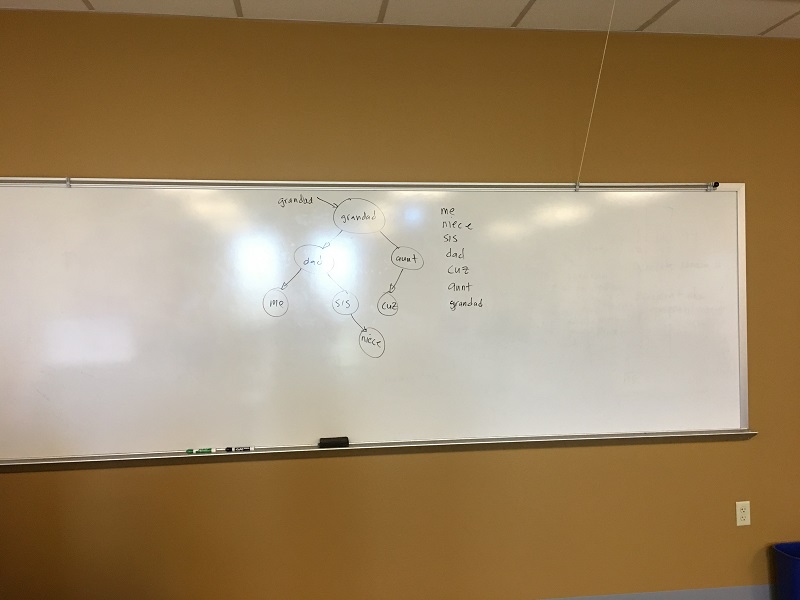 grandad
grandad
dad
aunt
me
sis
cuz
niece
me
niece
sis
dad
cuz
aunt
grandad